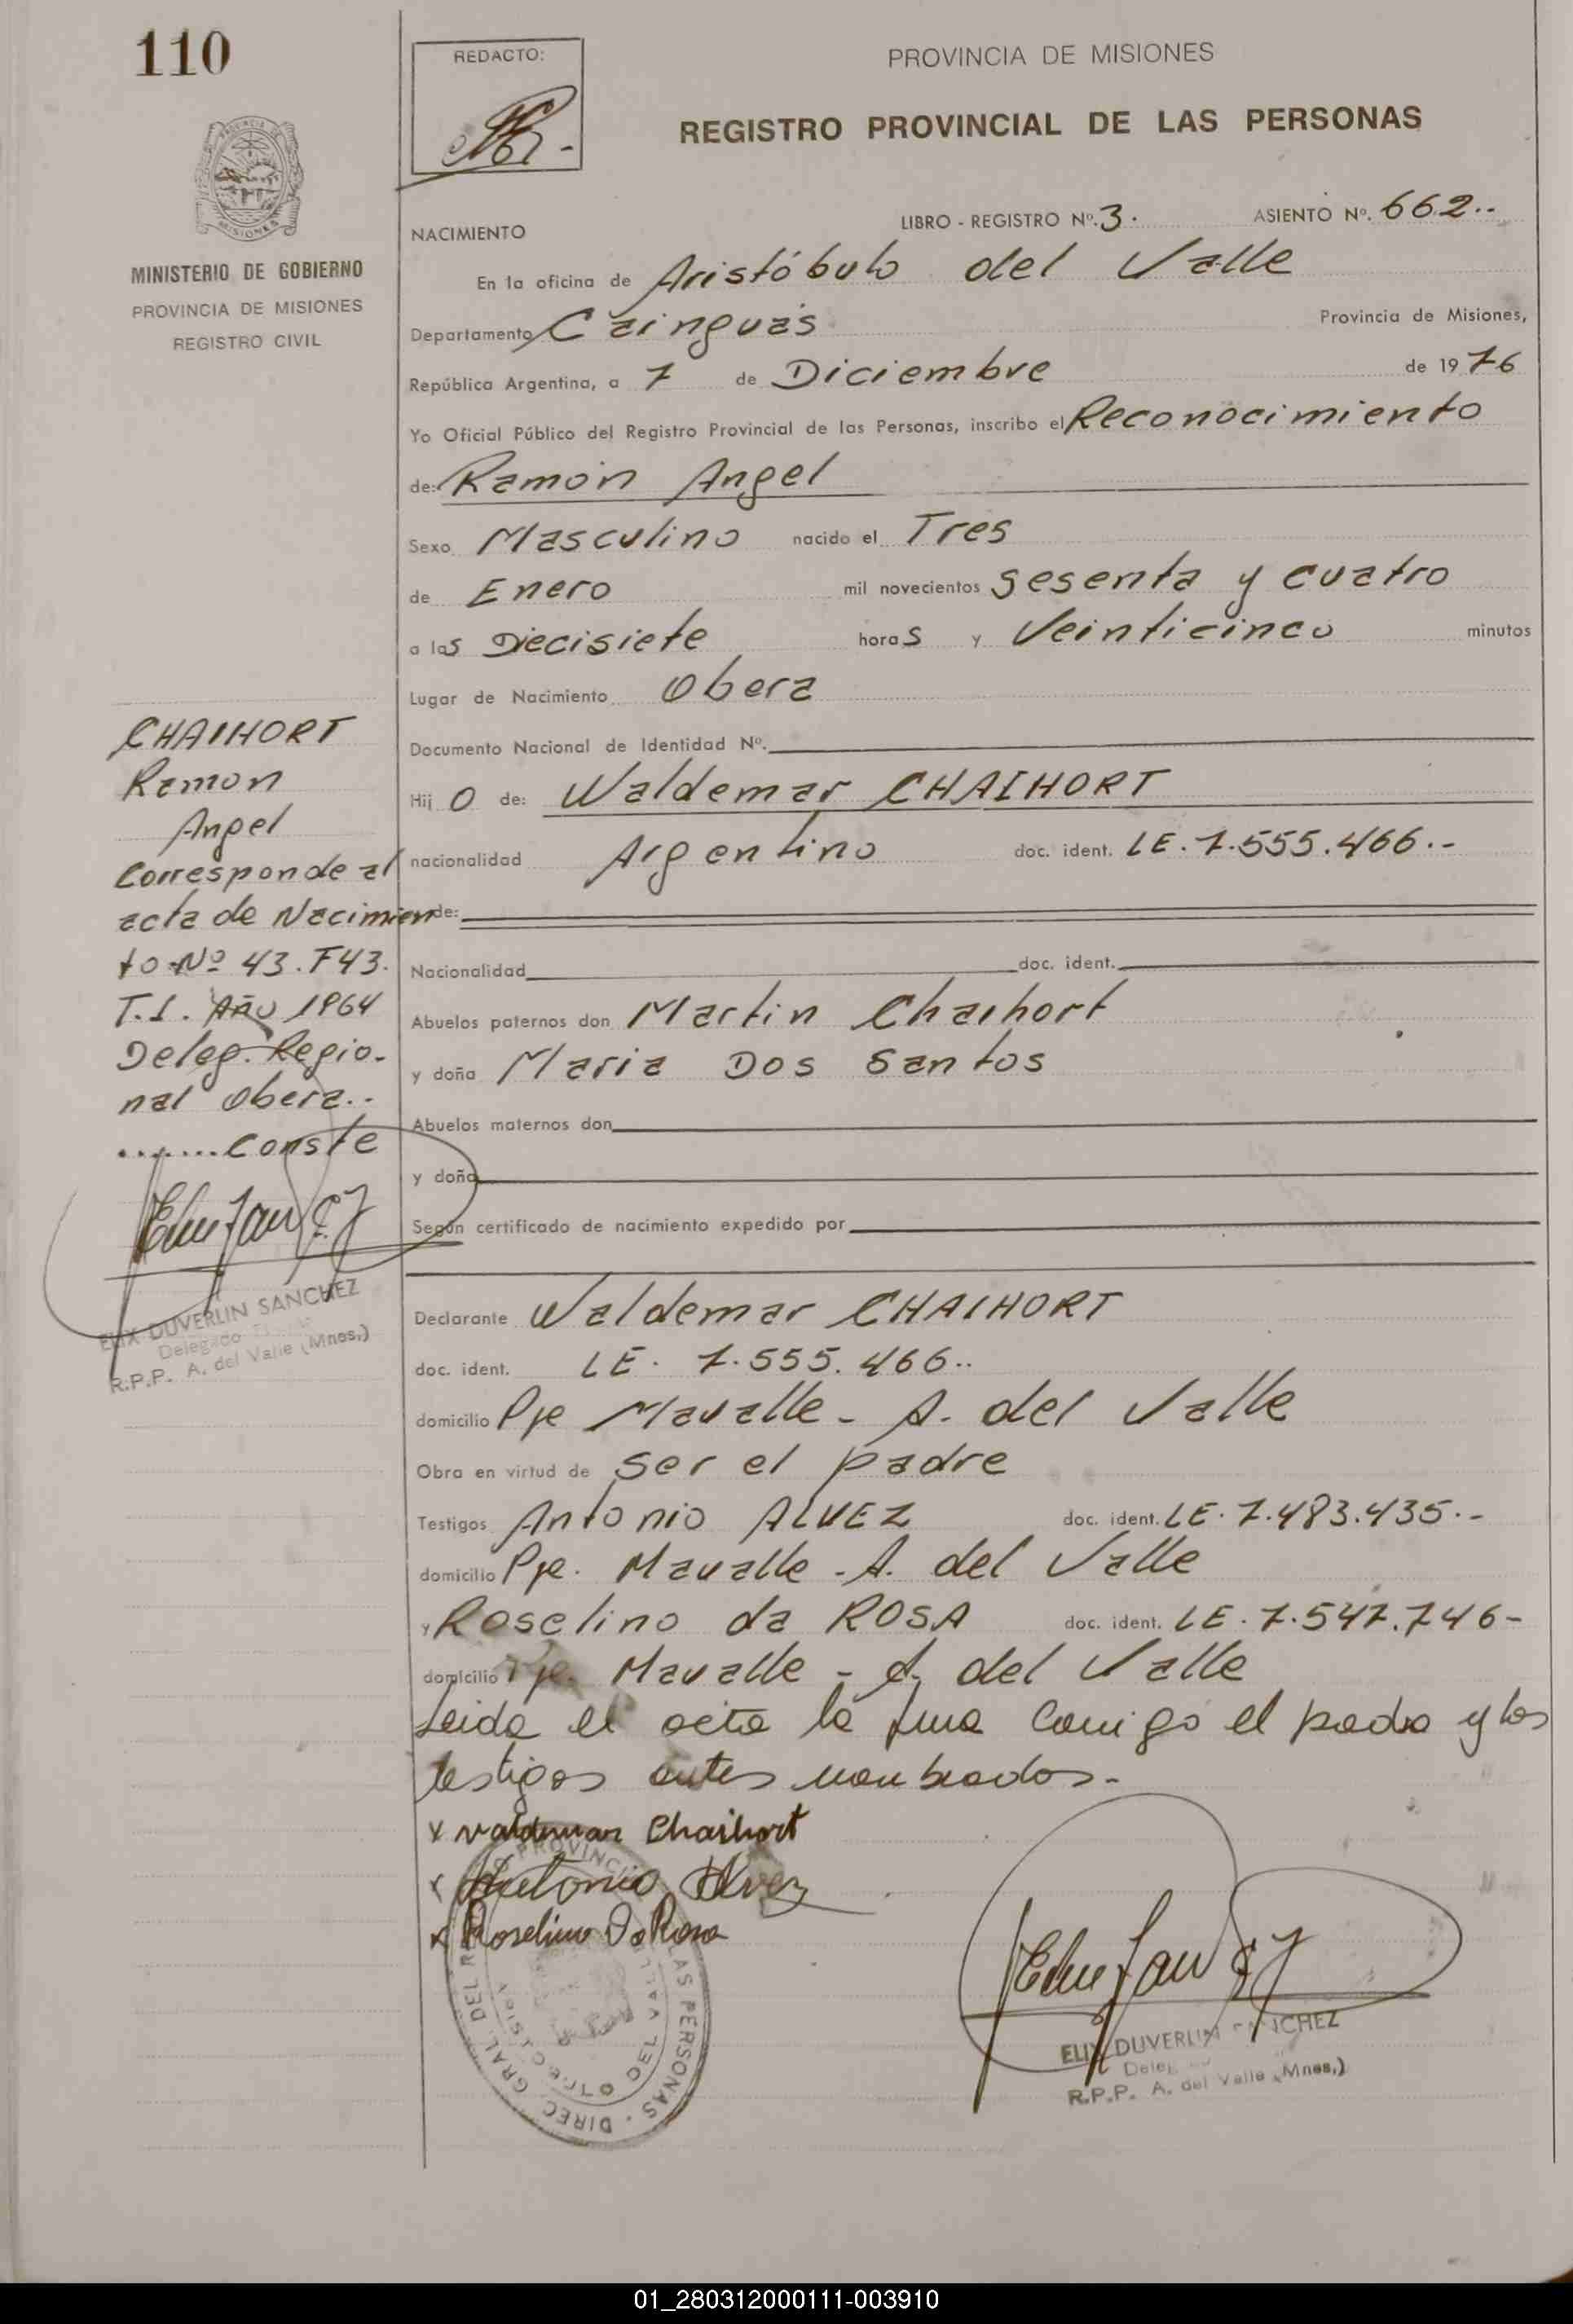 110
REDACTO:
PROVINCIA DE MISIONES
REGISTRO PROVINCIAL DE LAS PERSONAS
MINISTERIO DE GOBIERNO
PROVINCIA DE MISIONES
REGISTRO CIVIL
NACIMIENTO LIBRO - REGISTRO Nº. 3. ASIENTO Nº. 662..
En la oficina de Aristóbulo del Valle
Departamento Cainguás Provincia de Misiones,
República Argentina, a 7 de Diciembre de 1976
Yo Oficial Público del Registro Provincial de las Personas, inscribo el Reconocimiento
de: Ramón Angel
Sexo Masculino nacido el Tres
de Enero mil novecientos sesenta y cuatro
a las Diecisiete horas y Veinticinco minutos
Lugar de Nacimiento Obera
Documento Nacional de Identidad Nº.
Hijo de: Waldemar CHAIHORT
nacionalidad Argentino doc. ident. LE. 7.555.466.-
de:
Nacionalidad doc. ident.
Abuelos paternos don Martin Chaihort
y doña Maria Dos Santos
Abuelos maternos don
y doña
Según certificado de nacimiento expedido por
CHAIHORT
Ramon
Angel
Corresponde al
acta de Nacimien
to Nº 43. F43.
T.I. Año 1964
Deleg. Regio-
nal Obera..
.......Conste
ELIX DUVERLIN SANCHEZ
Delegado
R.P.P. A. del Valle (Mnes,)
Declarante Waldemar CHAIHORT
doc. ident. LE. 7.555.466..
domicilio Pje Mavalle - A. del Valle
Obra en virtud de ser el padre
Testigos Antonio ALVEZ doc. ident. LE. 7.483.435.-
domicilio Pje. Mavalle - A. del Valle
y Roselino da ROSA doc. ident. LE. 7.547.746-
domicilio Pje. Mavalle - A. del Valle
Leida el acta la firma conmigo el padre y los
testigos antes nombrados.-
x valdemar Chaihort
x Antonio Alvez
x Roselino Da Rosa
DIREC. GRAL. DEL PROVINCIAL LAS PERSONAS
DEL VALLE
ELIX DUVERLIN SANCHEZ
R.P.P. A. del Valle (Mnes,)
01_280312000111-003910